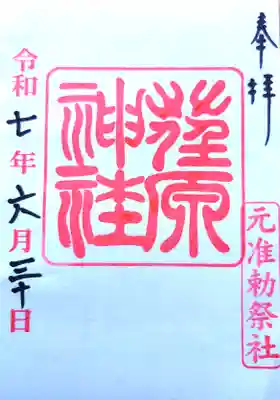 奉拝
荏原
神社
元准勅祭社
令和七年六月三十日